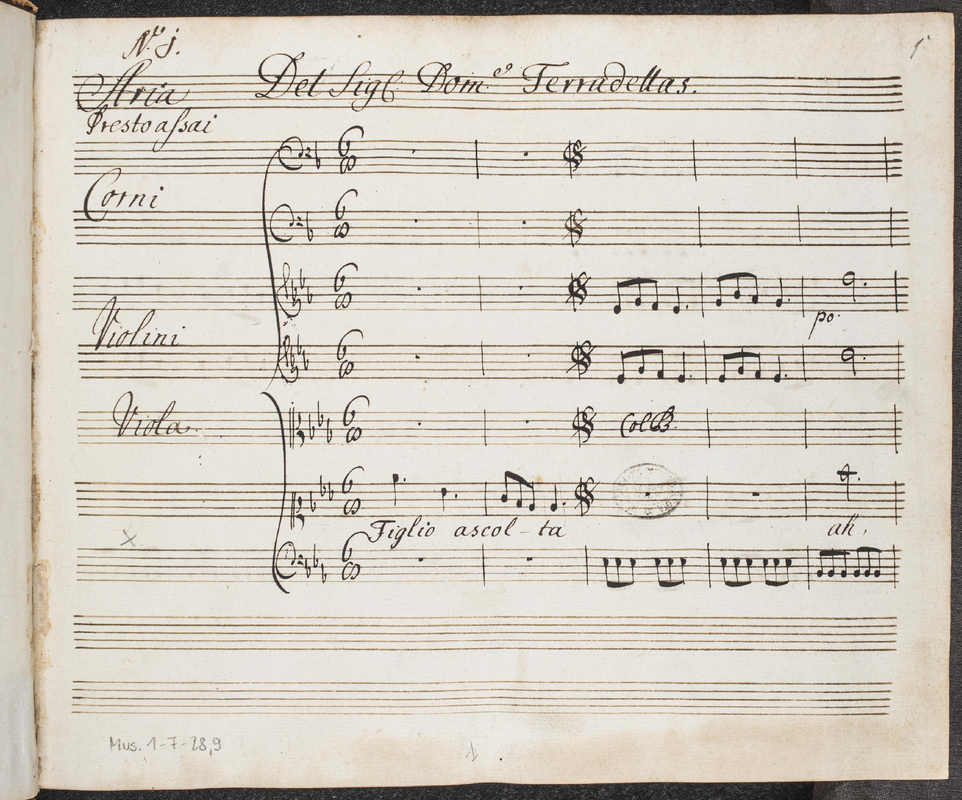 N.º j.
1
Aria
Del Sigl. Dom.co Terradellas.
Presto assai
Corni
Violini
po.
Viola
Col B.
Figlio ascol-ta
ah,
Mus. 1-7-28,9
1